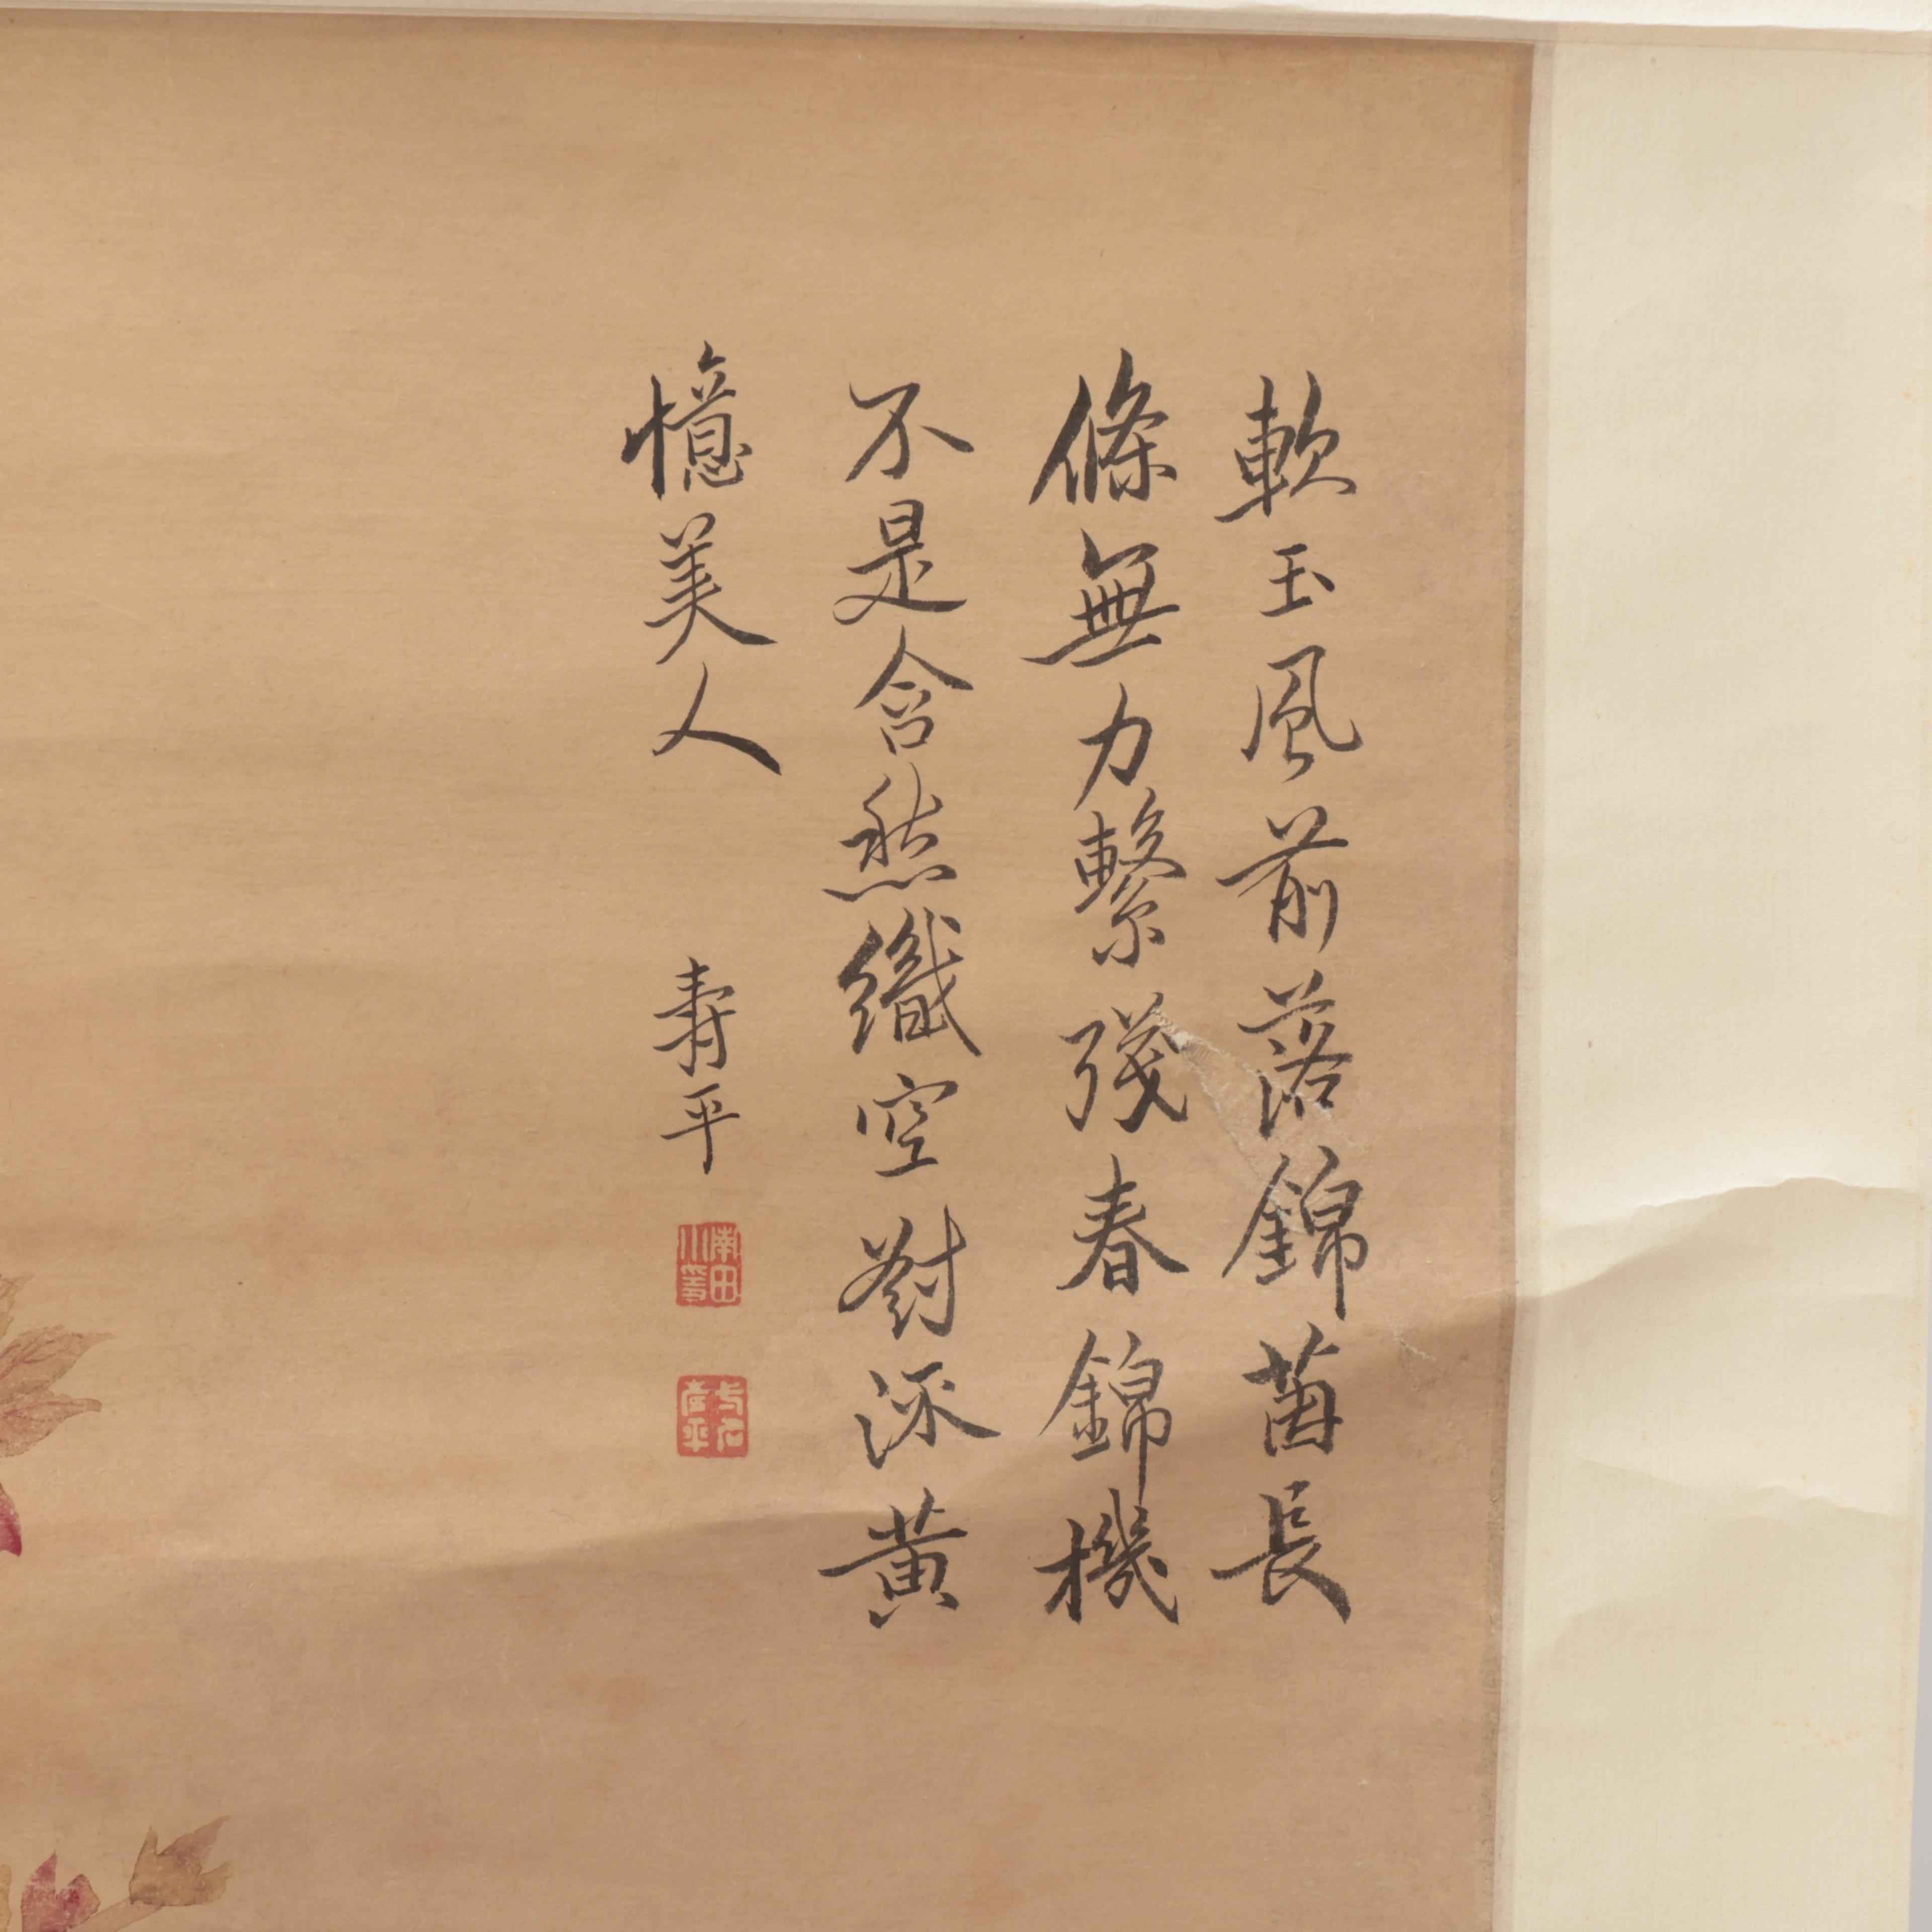 軟玉風前落錦茵長
條無力繫殘春錦機
不是含愁織空對流黃
憶美人 壽平
南田